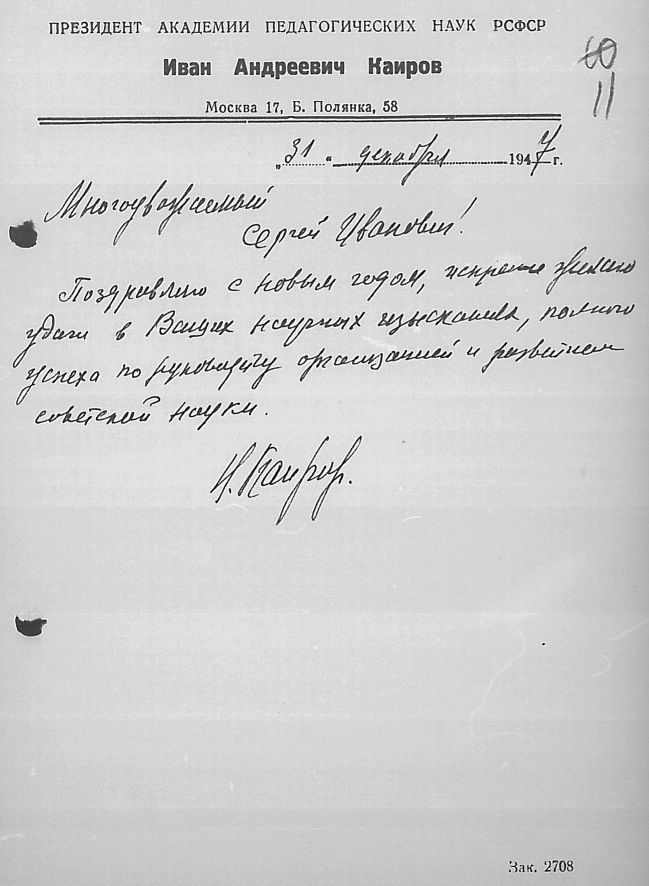 ПРЕЗИДЕНТ АКАДЕМИИ ПЕДАГОГИЧЕСКИХ НАУК РСФСР
Иван Андреевич Каиров
Москва 17, Б. Полянка, 58
60
11
„31 “ декабря 1947 г.
Многоуважаемый
Сергей Иванович!
Поздравляю с новым годом, искренне желаю
удачи в Ваших научных изысканиях, полного
успеха по руководству организацией и развитием
советской науки.
И. Каиров.
Зак. 2708